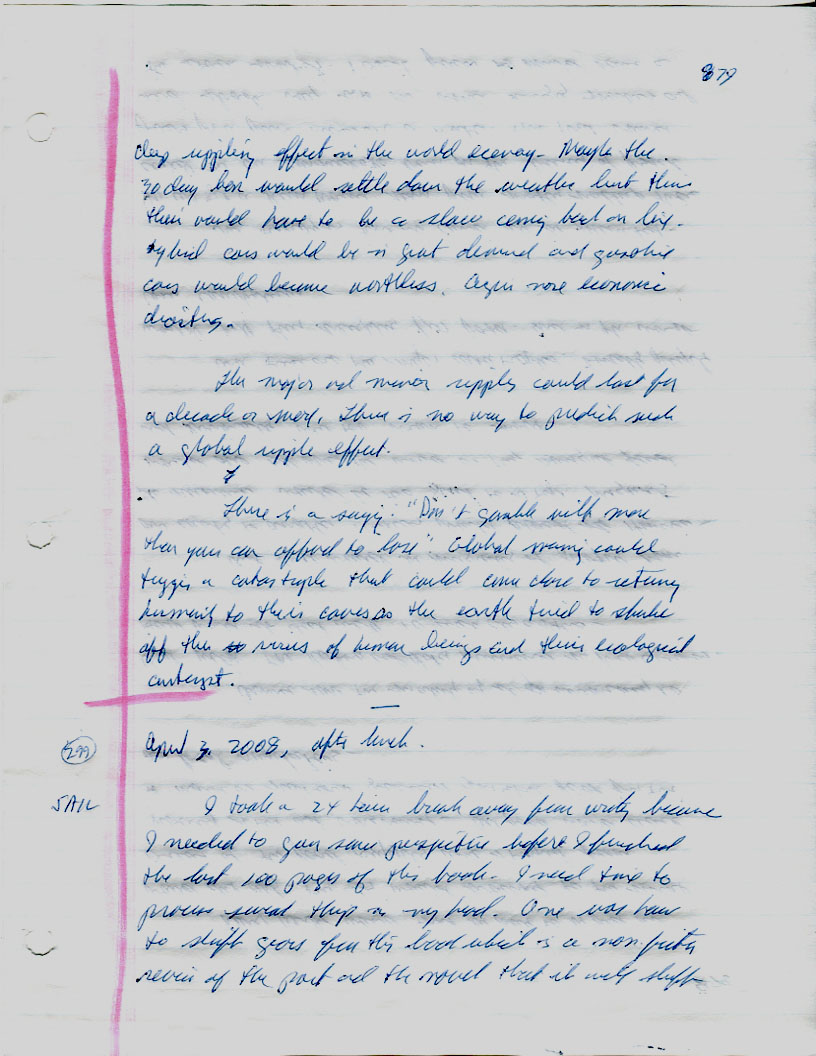 879
day rippling effect in the world economy. Maybe the
30 day ban would settle down the weather but then
their would have to be a slow coming back on line.
Hybrid cars would be in great demand and gasoline
cars would become worthless. Again more economic
disasters.
The major and minor ripples could last for
a decade or more. There is no way to predict such
a global ripple effect.
There is a saying: "Don't gamble with more
than you can afford to lose". Global warming could
trigger a catastrophe that could come close to returning
humanity to their caves as the earth tried to shake
off the virus of human beings and their ecological
April 3, 2008, after lunch.
299
JAIL
I took a 24 hour break away from writing because
I needed to gain some perspective before I finished
the last 100 pages of this book. I need time to
process several things in my head. One was how
to shift gears from this book which is a non-fiction
review of the past and the novel that it will